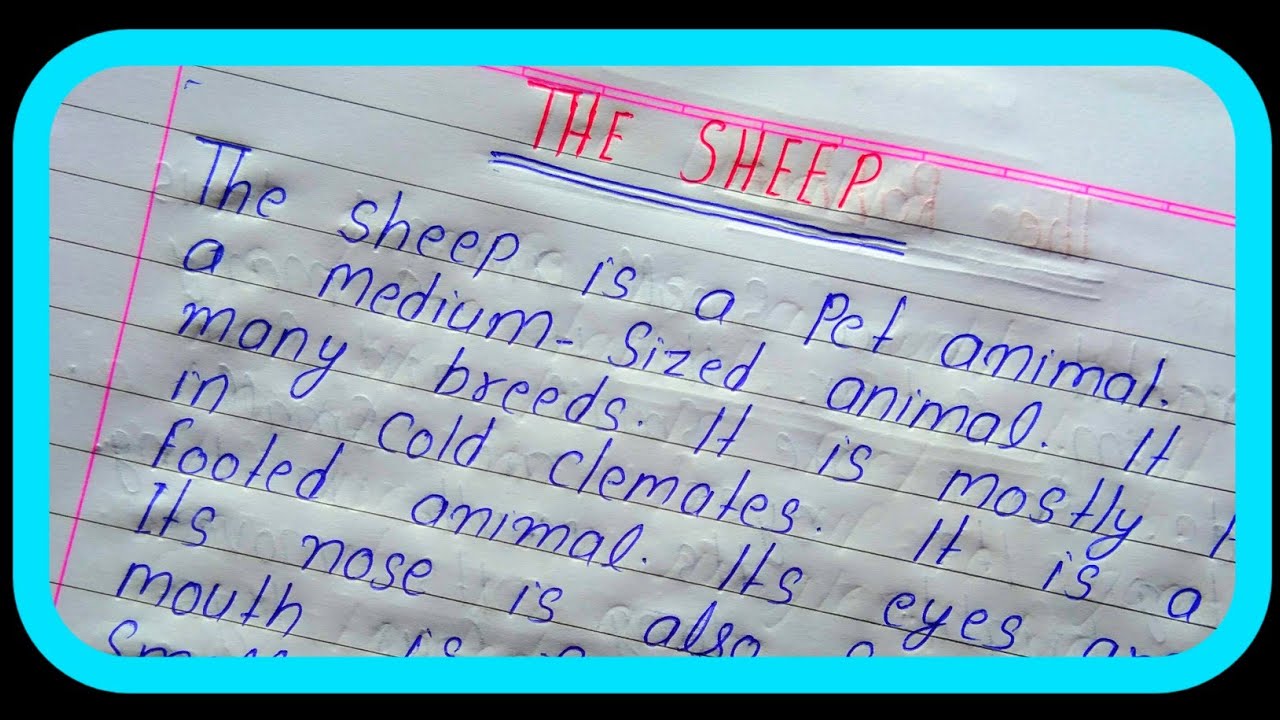 THE SHEEP
The sheep is a Pet animal.
a medium-Sized animal. It
many breeds. It is mostly
in Cold Clemates. It is a
footed animal. Its eyes
Its nose is also
mouth is